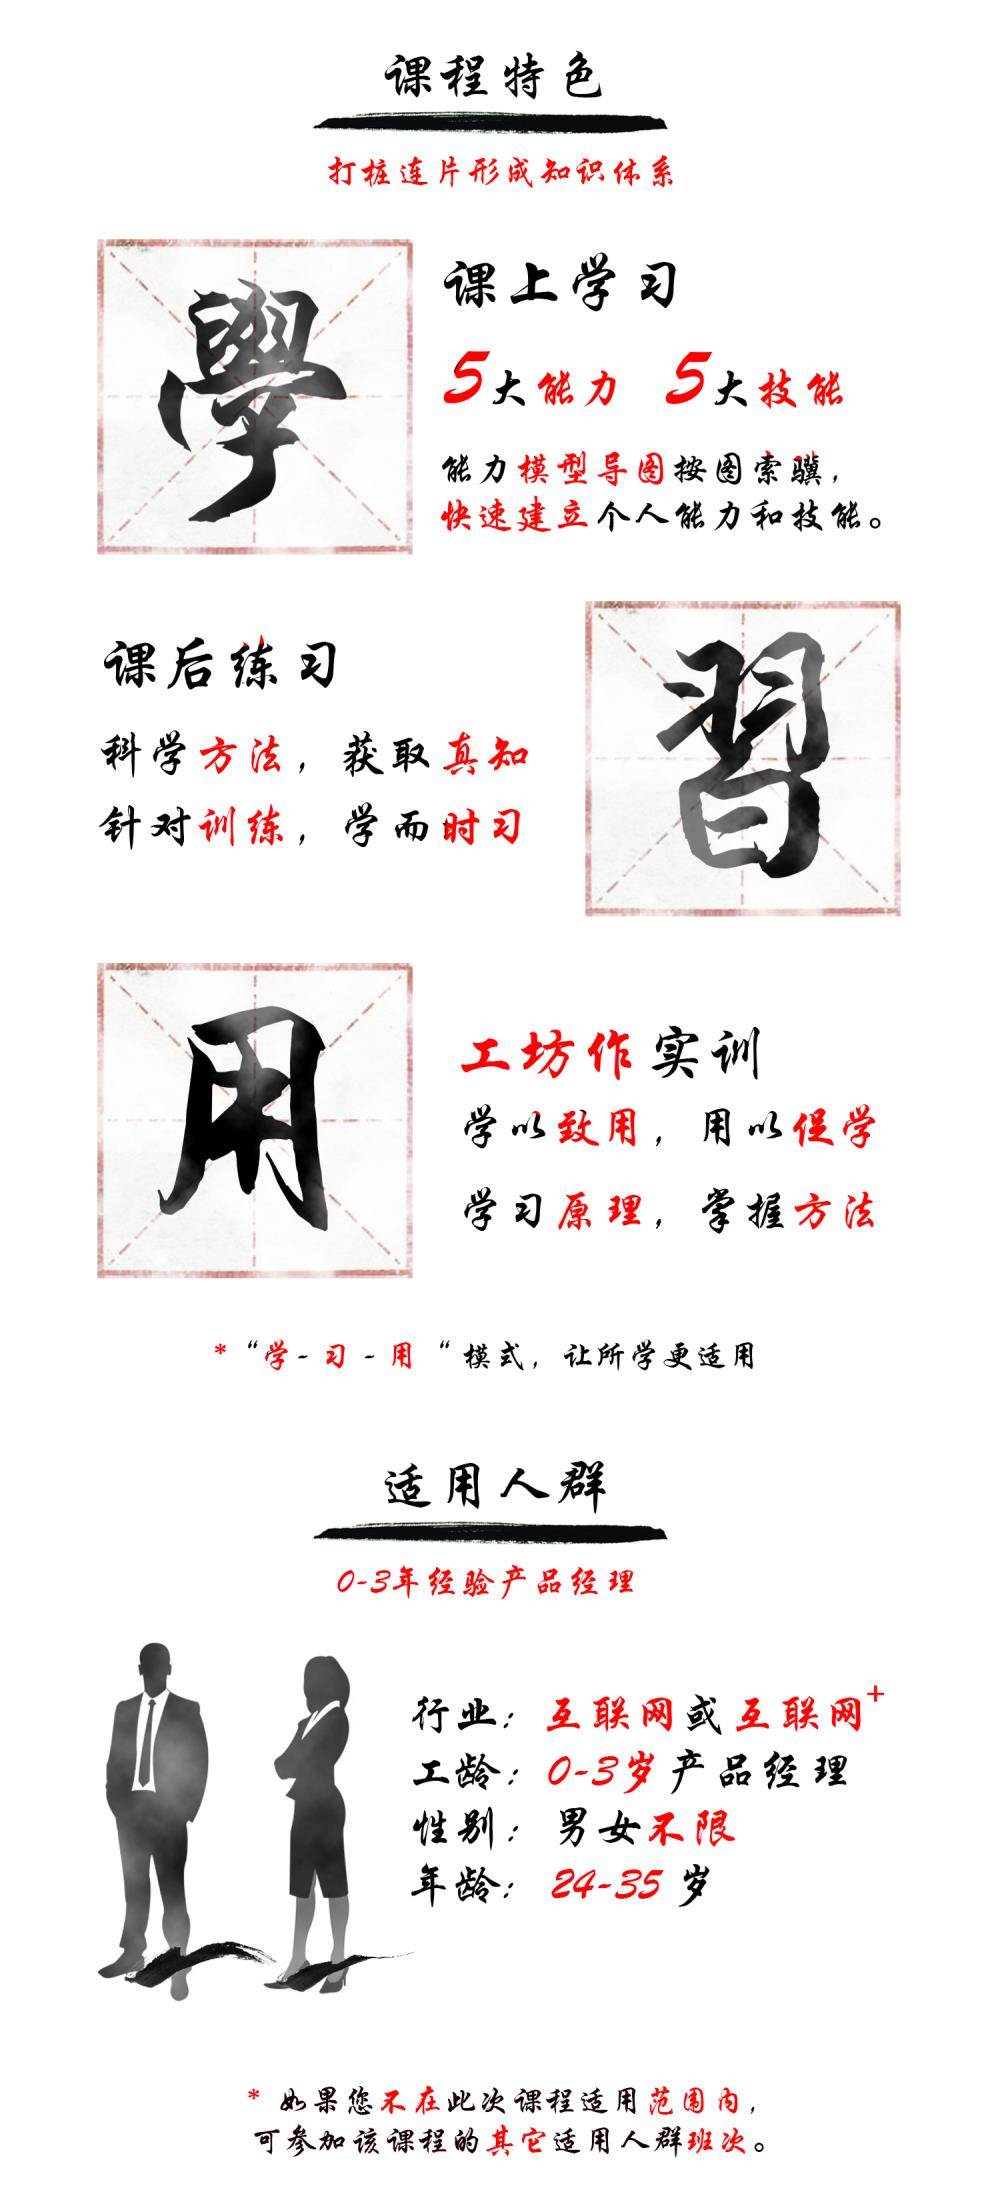 课程特色
打桩连片形成知识体系
學
课上学习
5大能力 5大技能
能力模型导图按图索骥，
快速建立个人能力和技能。
课后练习
科学方法，获取真知
针对训练，学而时习
習
用
工坊作实训
学以致用，用以促学
学习原理，掌握方法
*“学-习-用“模式，让所学更适用
适用人群
0-3年经验产品经理
行业：互联网或互联网+
工龄：0-3岁产品经理
性别：男女不限
年龄：24-35岁
* 如果您不在此次课程适用范围内，
可参加该课程的其它适用人群班次。